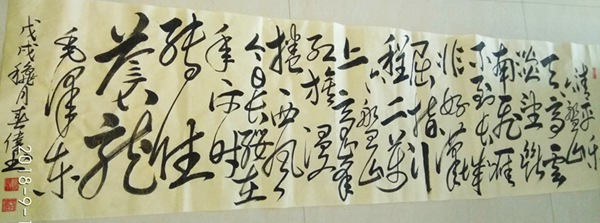 清平乐
六盘山
天高云
淡望断
南飞雁
不到长城
非好汉
屈指行
程二万
六盘山
上高峰
红旗漫
捲西风
今日长缨在
手何时
缚住
苍龙
毛泽东
戊戌穐月
2018-9-1